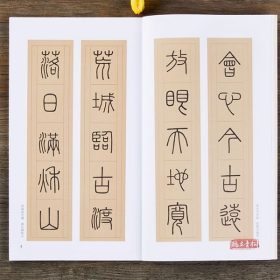 會心今古遠
放眼天地寬
荒城臨古渡
落日滿秋山